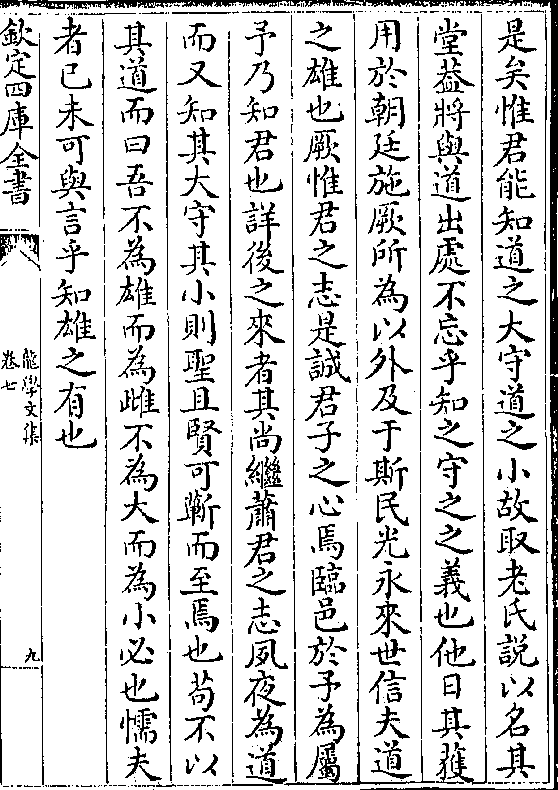 是矣惟君能知道之大守道之小故取老氏說以名其
堂葢將與道出處不忘乎知之守之之義也他日其䕶
用於朝廷施厥所為以外及于斯民光永來世信夫道
之雄也厥惟君之志是誠君子之心焉臨邑於予為屬
予乃知君也詳後之來者其尚繼蕭君之志夙夜為道
而又知其大守其小則聖且賢可蘄而至焉也茍不以
其道而曰吾不為雄而為雌不為大而為小必也懦夫
者已未可與言乎知雄之有也
欽定四庫全書
龍學文集
卷七
九